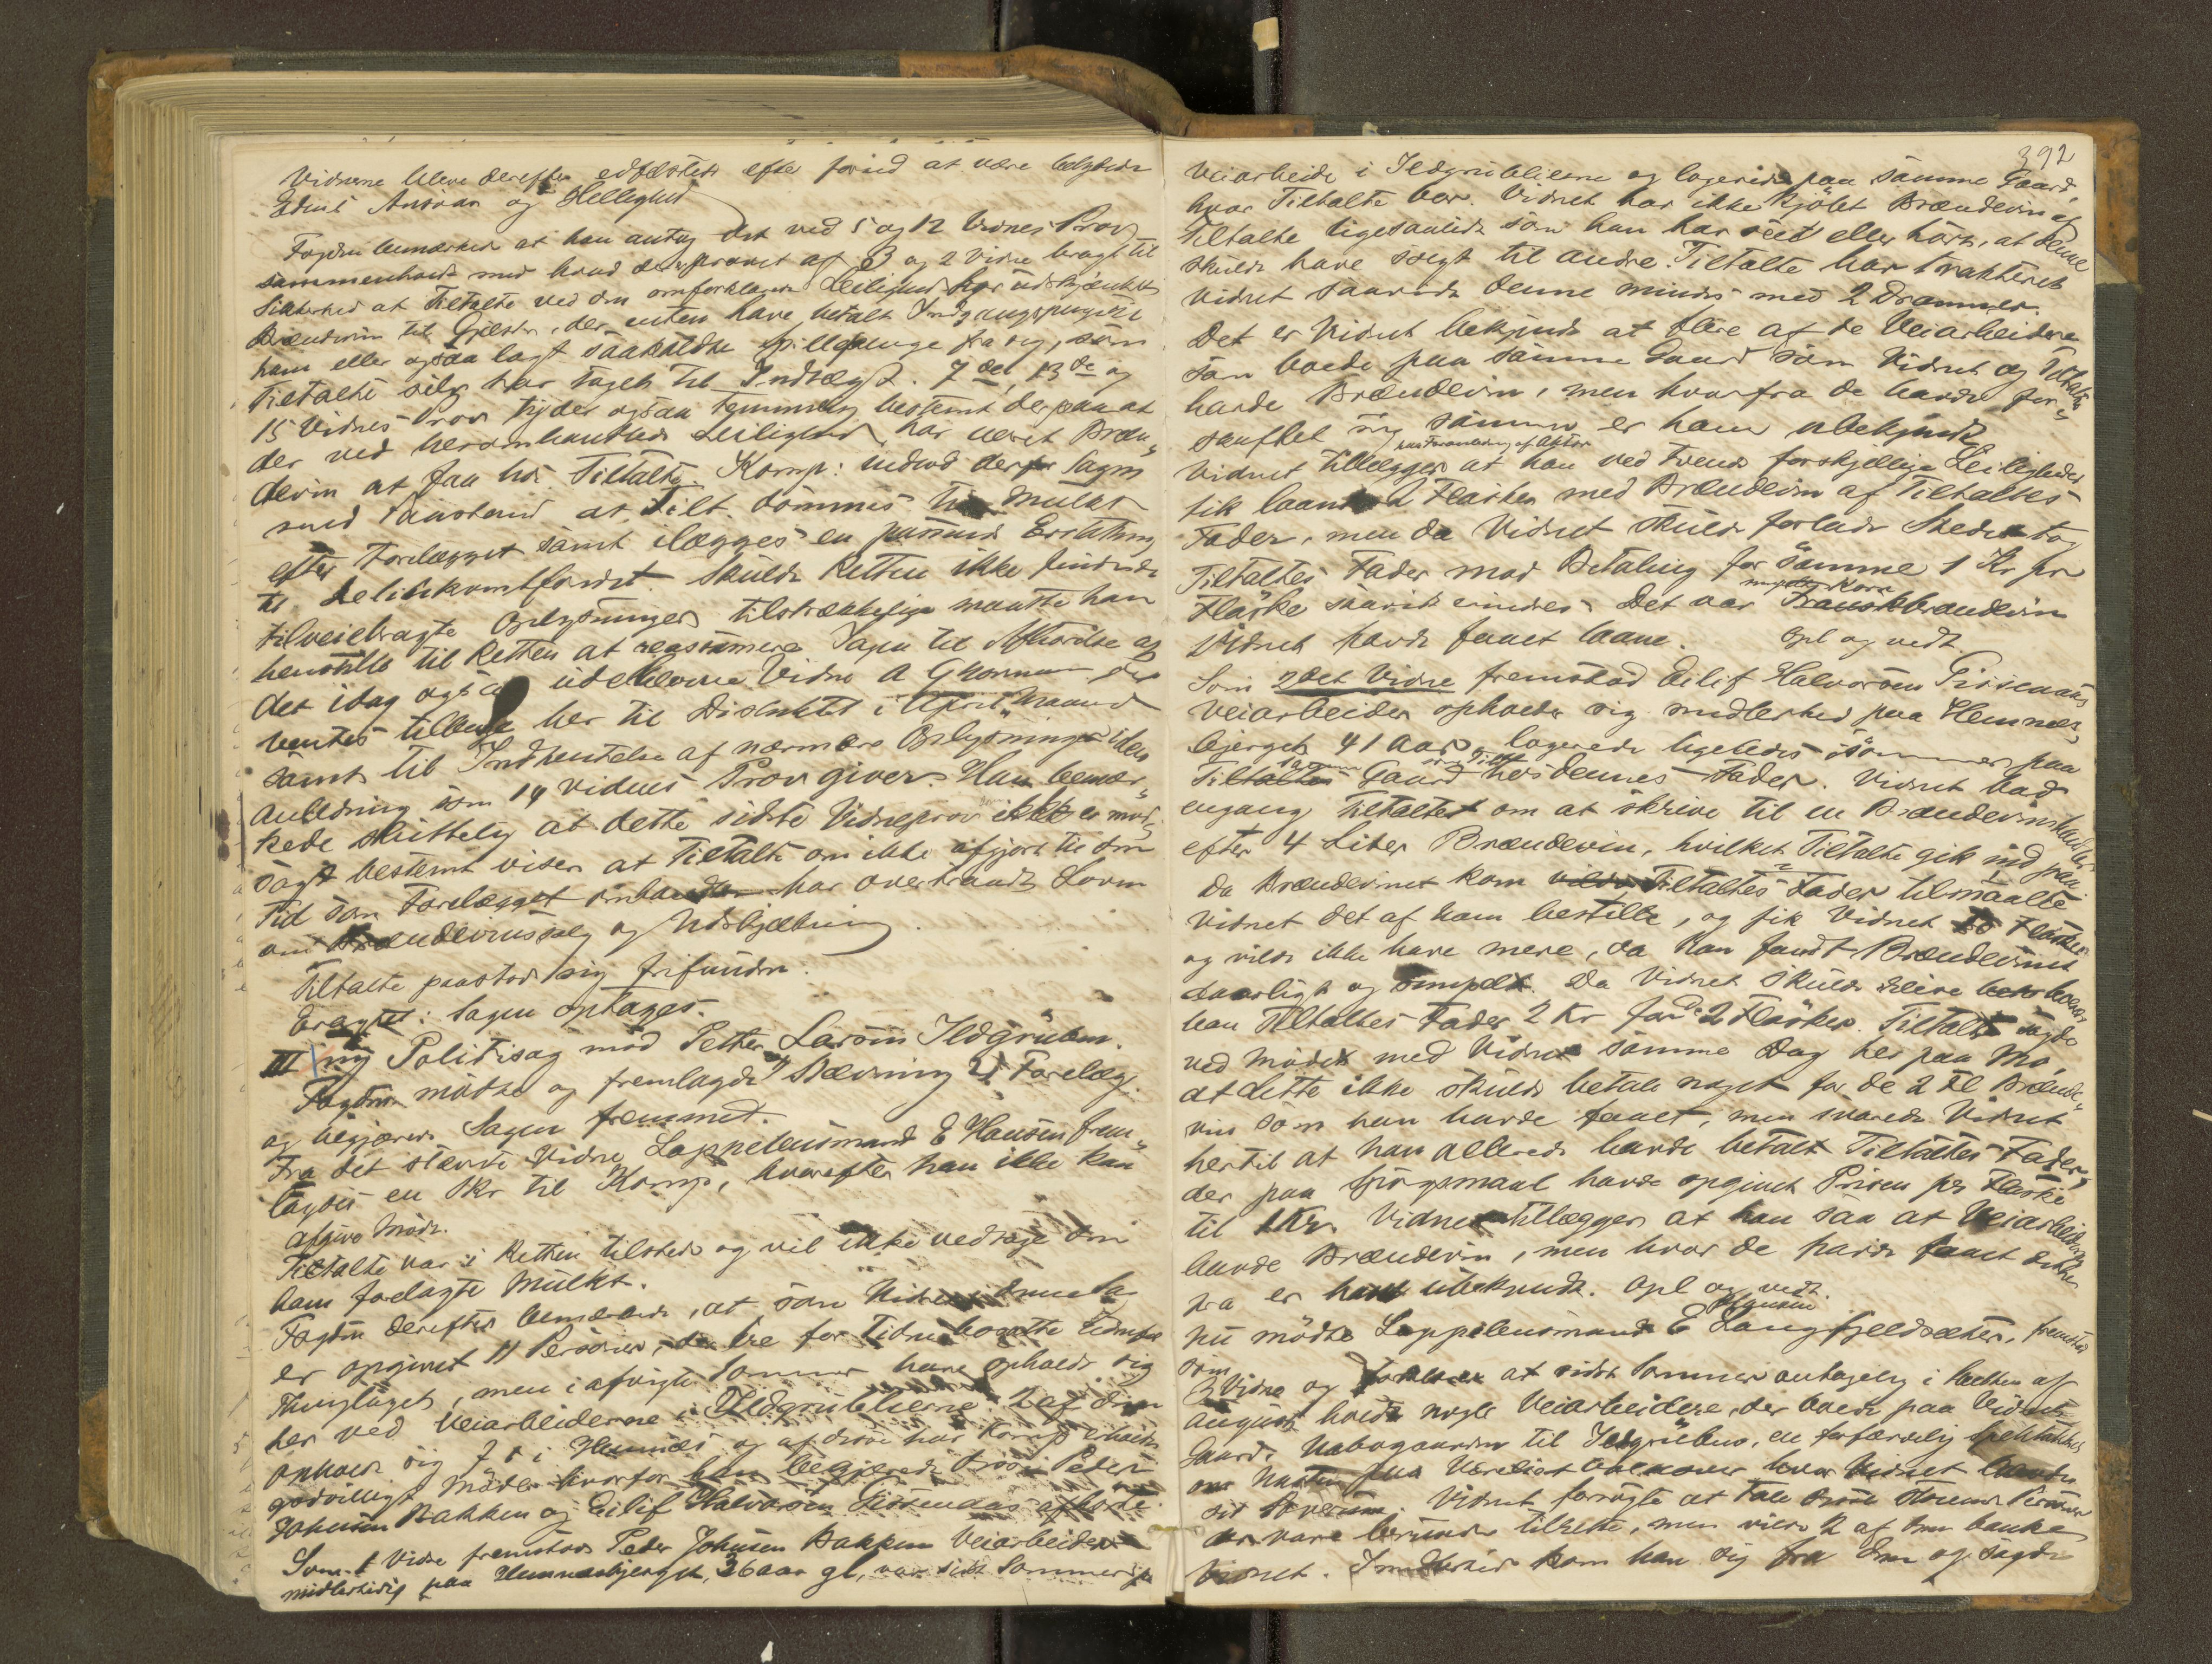 Vidnerne bleve derefter edfæstede efter forud at være betydede
Edens Ansvar og Hellighed
Fogden bemærkede at han antog det ved 5 og 12 Vidnes Prov
sammenholdt med hvad der er provet af 3 og 2 Vidne bragt til
Sikkerhed at Tiltalte ved den omforklarede Leilighed har udskjænket
Brændevin til Gjæster, der enten have betalt Indgangspenge til
ham eller ogsaa lagt saakaldte Spillepenge fra sig, som
Tiltalte selv har taget til Indtægt. 7de, 13de og
15 Vidnes Prov tyder ogsaa temmelig bestemt derpaa at
der ved heromhandlede Leilighed har været Bræn-
devin at faa hos Tiltalte. Komp: indlod derfor Sagen
med Paastand at Tilt. dømmes til Mulkt
efter Forelægget samt ilægges en passende Erstatning
til Delinkventfondet. Skulde Retten ikke finde de
tilveiebragte Oplysninger tilstrækkelige maatte han
henstille til Retten at reassumere Sagen til Afhørelse af
det idag ogsaa udeblevne Vidne A
ventes tilbage her til Distriktet i April Maaned
samt til Indhentelse af nærmere Oplysninger
Anledning som 14 Vidnes Prov giver. Han bemær-
kede sluttelig at dette sidste Vidneprov ikke er mod-
sagt bestemt viser at Tiltalte om ikke afgjort til den
Tid som Forelægget omhandler har overtraadt Loven
om Brændevinssalg og Udskjænkning
Tiltalte paastod sig frifunden.
Eragtet: Sagen optages.
III ny Politisag mod Petter Larsen Ildgruben.
Fogden mødte og fremlagde 1) Stævning 2) Forelæg
og begjærede Sagen fremmet.
Fra det stævnte Vidne Lappelensmand E Hansen frem-
lagdes en Skr til Komp, hvorefter han ikke kan
afgive Møde.
Tiltalte var i Retten tilstede og vil ikke vedtage den
ham forelagte Mulkt.
Fogden derefter bemærkede, at som Vidner i denne Sag
er opgivet 11 Personer, der tre for Tiden
Thinglaget, men i afvigte Sommer have opholdt sig
her ved Veiarbeiderne i Ildgrublierne. 2 af dem
opholde sig f T i Hemnæs og af disse har Komp erholdt
godvilligt Møde hvorfor han begjærede disse Peder
Johnsen Bakken og Eilif Halvorsen Tissenaas afhørte.
Som 1 Vidne fremstod Peder Johnsen Bakken Veiarbeider
midlertidig paa Hemnæsbjerget, 36 aar gl, var sidste Sommer paa
392
Veiarbeide i Ildgrublierne og logerede paa samme Gaard,
hvor Tiltalte bor. Vidnet har ikke kjöbt Brændevin af
Tiltalte ligesaalidt som han har seet eller hört, at denne
skulde have solgt til andre. Tiltalte har trakteret
Vidnet saavidt denne mindes med 2 Drammer.
Det er Vidnet bekjendt at flere af de Veiarbeidere
som boede paa samme Gaard som Vidnet og Tiltalte
havde Brændevin, men hvorfra de havde for-
skaffet sig samme er ham ubekjendt
paa Foranledning af Aktor
Vidnet tillægger at han ved tvende forskjellige Leiligheder
fik laant 2 Flasker med Brændevin af Tiltaltes
Fader, men da Vidnet skulde forlade Stedet tog
Tiltaltes Fader mod Betaling for samme 1 Kr pr
Flaske saavidt erindres. Det var Franskbrændevin
Vidnet havde faaet laane. Opl og vedt.
Som 2det Vidne fremstod Eilif Halvorsen Tissenaas
Veiarbeider opholder sig midlertid paa Hemnæs-
bjerget 41 Aar, logerede ligeledes i Sommer paa
Tiltaltes Gaard hos dennes Fader. Vidnet bad
engang Tiltalte om at skrive til en Brændevinshandler
efter 4 Liter Brændevin, hvilket Tiltalte gik ind paa.
Da Brændevinet kom vilde Tiltaltes Fader tilmaalte
Vidnet det af ham bestilte, og fik Vidnet Flasker
og vilde ikke have mere, da han fandt Brændevinet
daarligt og simpelt. Da Vidnet skulde reise betalte
han Tiltaltes Fader 2 Kr for de 2 Flasker. Tiltalte sagde
ved Mødet med Vidnet samme Dag her paa Mo,
at dette ikke skulde betale noget for de 2 Fl Brænde-
vin som han havde faaet, men svarede Vidnet
hertil at han allerede havde betalt Tiltaltes Fader,
der paa Spörgsmaal havde opgivet Prisen per Flaske
til 1 Kr. Vidnet tillægger at han saa at Veiarbeiderne
havde Brændevin, men hvor de havde faaet dette
fra er ham ubekjendt. Opl og vedt.
Nu mødte Lappelensmand E Hansen Langfjeldsæter, fremstod
som
3 Vidne og forklarer at sidste Sommer antagelig i Midten af
August holdt nogle Veiarbeidere, der boede paa Vidnets
Gaard, Nabogaarden til Ildgruben, en forfærdelig Spektakkel
om Natten paa Værelset ovenover hvor Vidnet havde
sit Soverum. Vidnet forsögte at tale disse Personer
der vare berusede tilrette, men vilde 2 af dem banke
Vidnet. Imidlertid kom han sig fra dem og sagde